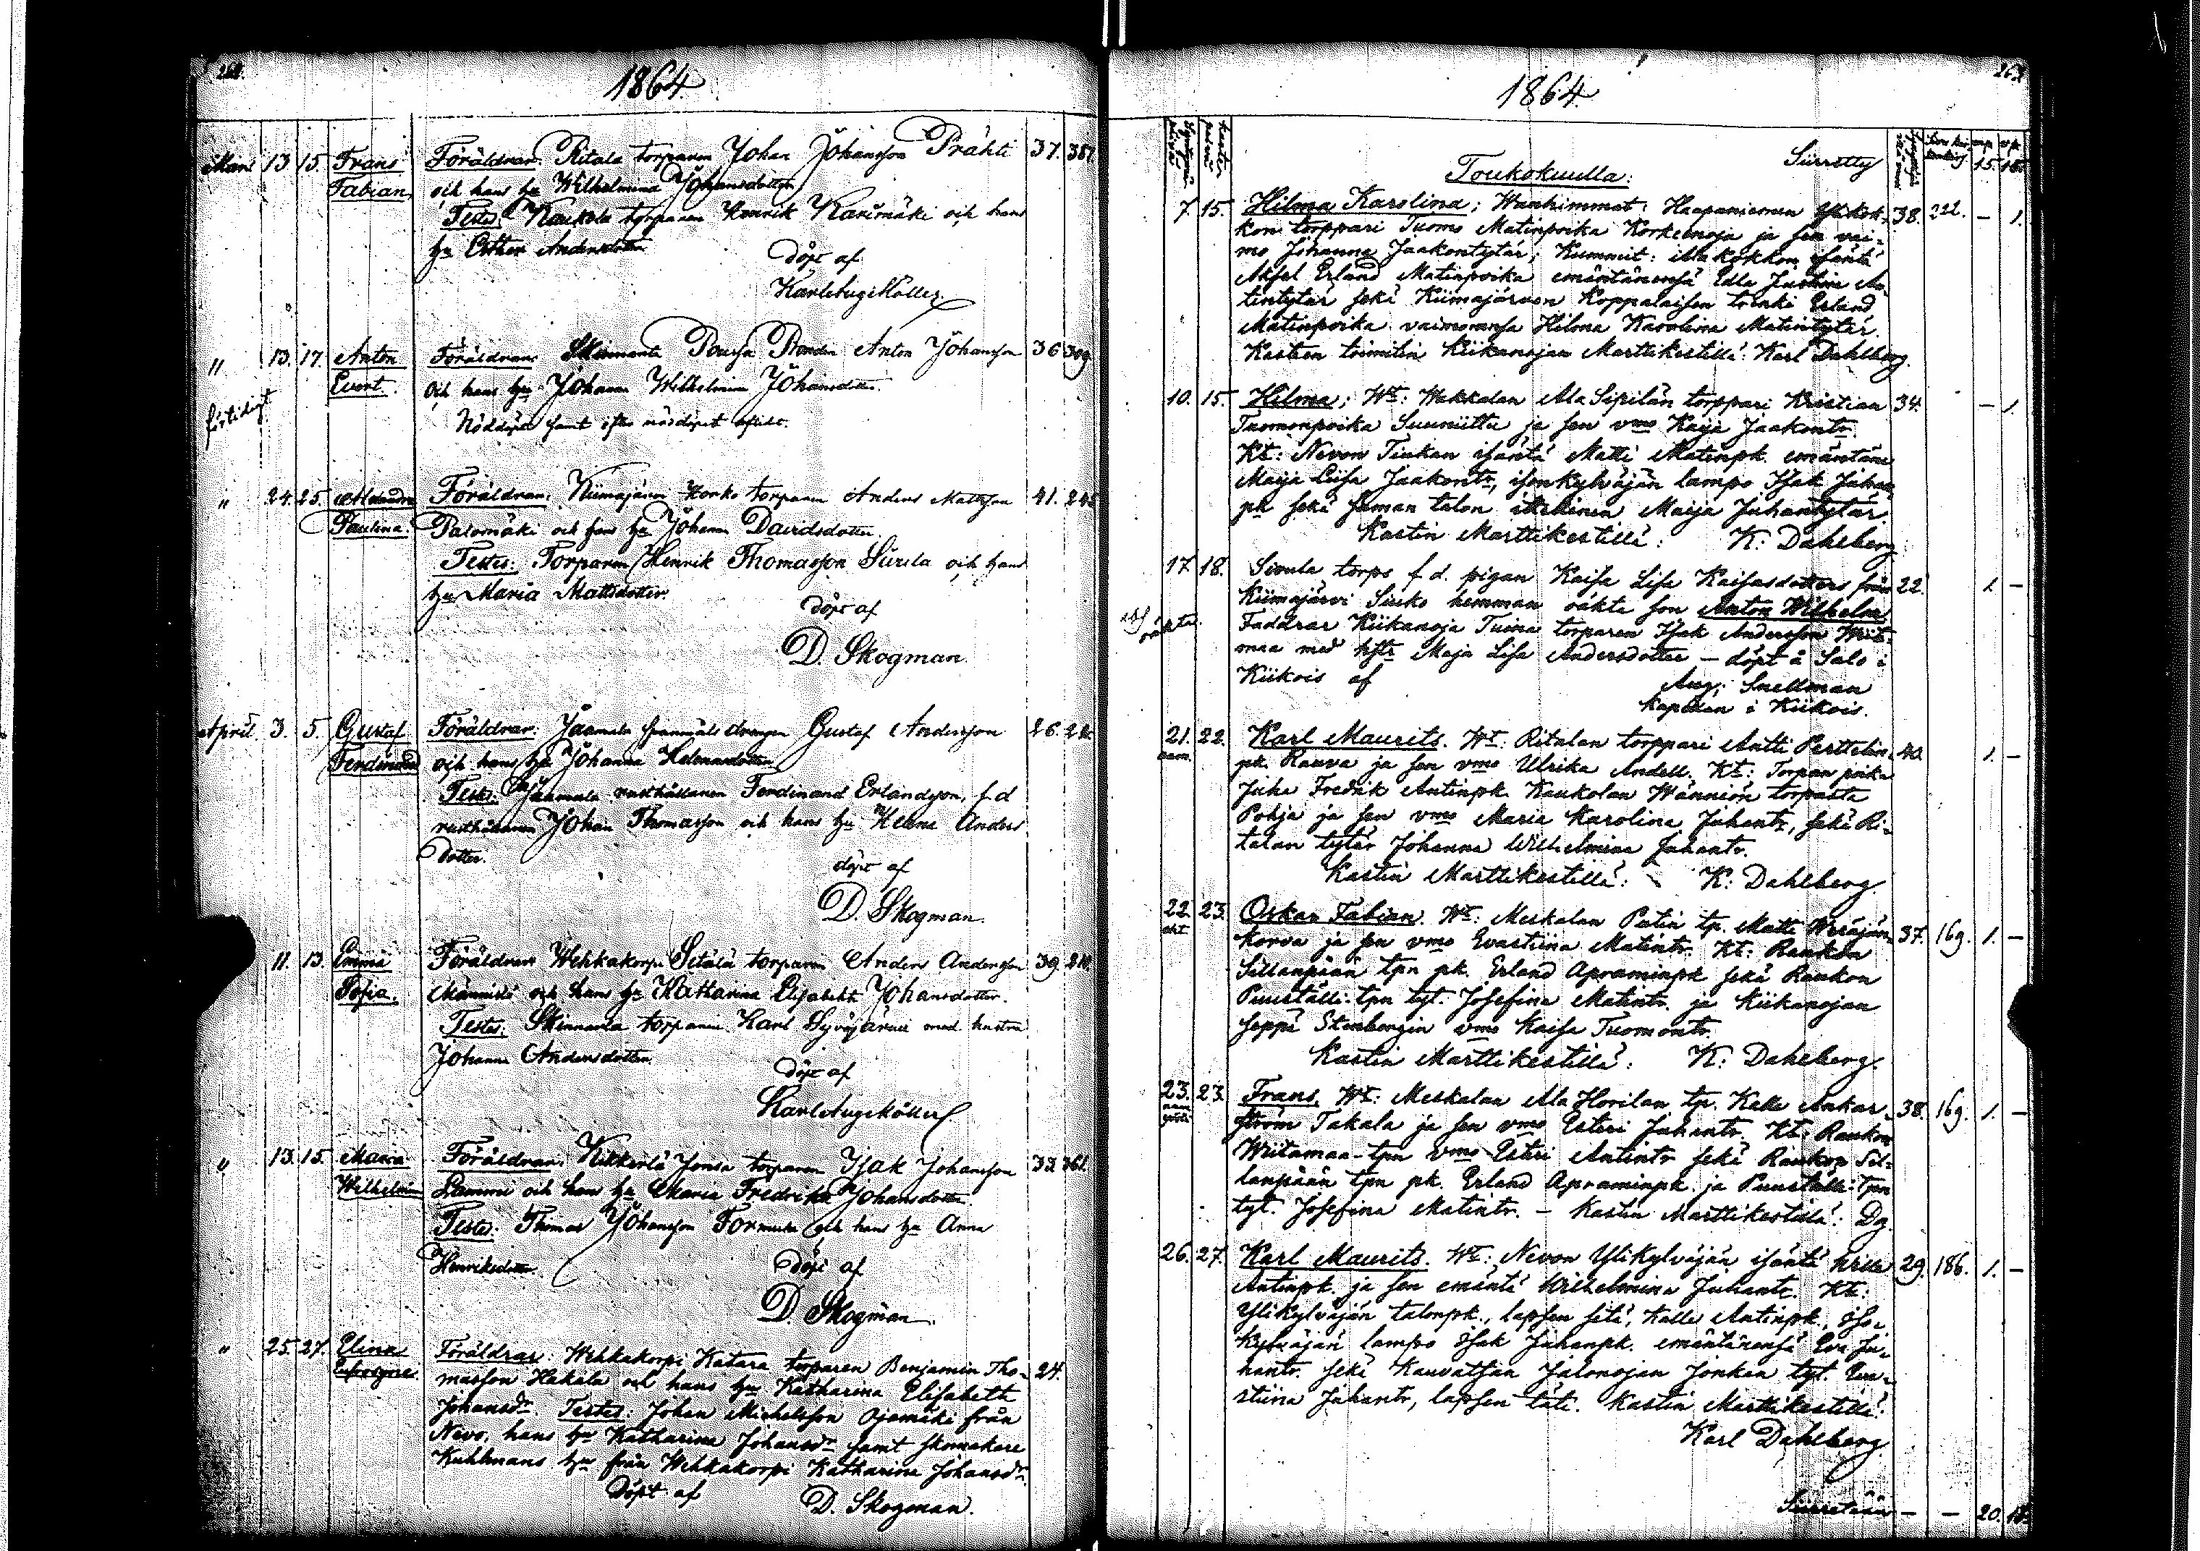 1864
Mars 13. 15. Frans Föräldrar: Ritala torparen Johan Johansson Prähti 37. 387.
Fabian och hans hu Wilhelmina Johansdotter
Testes: Kaukola torparen Henrik Karimäki och hans
hu Esther Andersdotter
döpt af
Karl Aug. Möller
" 13. 17. Anton Föräldrar: Skinnarla Bonden Anton Johansson 36 309.
Evert. och hans hu Johanna Wilhelmina Johansdotter.
förtidigt Nöddöpt samt efter nöddopet afled.
" 24. 25. Föräldrar: Kiimajärvi Korko torparen Anders Mattsson 41. 245
Paulina. Palomäki och hans hu Johanna Davidsdotter
Testes: Torparen Henrik Thomasson Siirila och hans
hu Maria Mattsdotter.
döpt af
D. Skogman.
April 3. 5. Gustaf Föräldrar: Jaamala drengen Gustaf Andersson 26.
Ferdinand och hans hu Johanna Helenasdotter
Testes: Jaamala rusthållaren Ferdinand Erlandsson, f.d.
rusthållaren Johan Thomasson och hans hu Helena Anders
dotter.
döpt af
D. Skogman.
11. 13. Emma Föräldrar: Wehkakorpi Sitälä torparen Anders Andersson 39. 210.
Sofia. Männistö och hans hu Katharina Elisabeth Johansdotter.
Testes: Skinnarla torparen Karl Syväjärvi med hustru
Johanna Andersdotter
döpt af
Karl Aug. Möller
" 13. 15. Maria Föräldrar: Kikkerlä Jonsa torparen Isak Johansson 33. 361.
Wilhelmina Lammi och hans hu Maria Fredrika Johansdotter.
Testes: Thomas Johansson och hans hu Anna
Henriksdotter.
döpt af
D. Skogman.
" 25. 27. Elina Föräldrar: Wehkakorpi Katara torparen Benjamin Tho- 24.
masson Hakala och hans hu Katharina Elisabeth
Johansdr. Testes: Johan Michelsson Ojamäki från
Nevo, hans hu Katharina Johansdr samt skomakare
Kuhlmans hu från Wehkakorpi Katharina Johansdr
döpt af D. Skogman.
1864
Siirretty 15. 16.
Toukokuulla:
7. 15. Hilma Karolina; Wanhimmat: Haapaniemen Ylikok- 38. 221. – 1.
kon torppari Tuomo Matinpoika Korkeaoja ja sen vai-
mo Johanna Jaakontytär; Kummit: Alakokkon isäntä
Aksel Erland Matinpoika emäntänensä Edla Justina An-
tintytär sekä Kiimajärven Koppalaisen trenki Erland
Matinpoika vaimonensa Hilma Karolina Matintytär.
Kasteen toimitin Kiikanojan Marttikestillä: Karl Dahlberg.
10. 15. Hilma; Wt: Wakkalan Ala Sipilän torppari Kristian 34. – 1.
Tuomonpoika Suuniittu ja sen vmo Kaija Jaakontr.
Kt: Nevon Tiukan isäntä Matti Matinpk. emäntäns
Maija Liisa Jaakontr, isonkylväjän lampo Isak Juhan
pk sekä saman talon itsellinen Maija Juhantytär
Kastin Marttikestillä: K: Dahlberg
17. 18. Sivula torps f.d. pigan Kaisa Lisa Kaisasdotters från 22. 1. –
Kiimajärvi Siuko hemman oäkta son Anton Wilhelm
oäkta. Faddrar Kiikanoja Tuina torparen Isak Andersson Wiit-
maa med hstr Maja Lisa Andersdotter – döpt å Salo i
Kiikois af Aug. Snellman
Kapellan i Kiikois.
21. 22. Karl Maurits. Wt: Ritalan torppari Antti Perttelin- 40. 1. –
aam. pk. Rauva ja sen vmo Ulrika Andell. Kt: Torpan poika
Juha Fredrik Antinpk Kaukolan Wännion torpasta
Pohja ja sen vmo Maria Karolina Juhantr, sekä Ri-
talan tytär Johanna Wilhelmina Juhantr.
Kastin Marttikestillä: K: Dahlberg.
22. 23. Oskar Fabian. Wt: Meskalan Putin tp. Matti Weräjän- 37. 169. 1. –
eht. korva ja sen vmo Evastiina Matintr. Kt: Raukon
Sillanpään tpn pk. Erland Apraminpk sekä Raukon
Puustelli-tpn tyt. Josefina Matintr. ja Kiikanojan
seppä Stenbergin vmo Kaisa Tuomontr.
Kastin Marttikestillä: K: Dahlberg.
23. 23. Frans. Wt: Meskalan Ala Horilan tp. Kalle Ankar- 38. 169. 1. –
ström Takala ja sen vmo Esteri Juhantr. Kt: Raukon
Wiitamaa-tpn vmo Esteri Antintr sekä Raukon Sil-
lanpään tpn pk. Erland Apraminpk. ja Puustelli-tpn
tyt. Josefina Matintr. – Kastin Marttikestillä: Dg.
26. 27. Karl Maurits. Wt: Nevon Ylikylväjän isäntä 29. 186. 1. –
Antinpk. ja sen emäntä Wilhelmina Juhantr. Kt:
Ylikylväjän talonpk., lapsen setä, Kalle Antinpk., Iso-
kylväjän lampo Isak Juhanpk. emäntänensä Eva Ju-
hantr. sekä Kauvatsan Jalonojan Jonkan tyt. Eva-
stiina Juhantr, lapsen täti. Kastin Marttikestillä:
Karl Dahlberg.
Siirretään – – 20. 18.